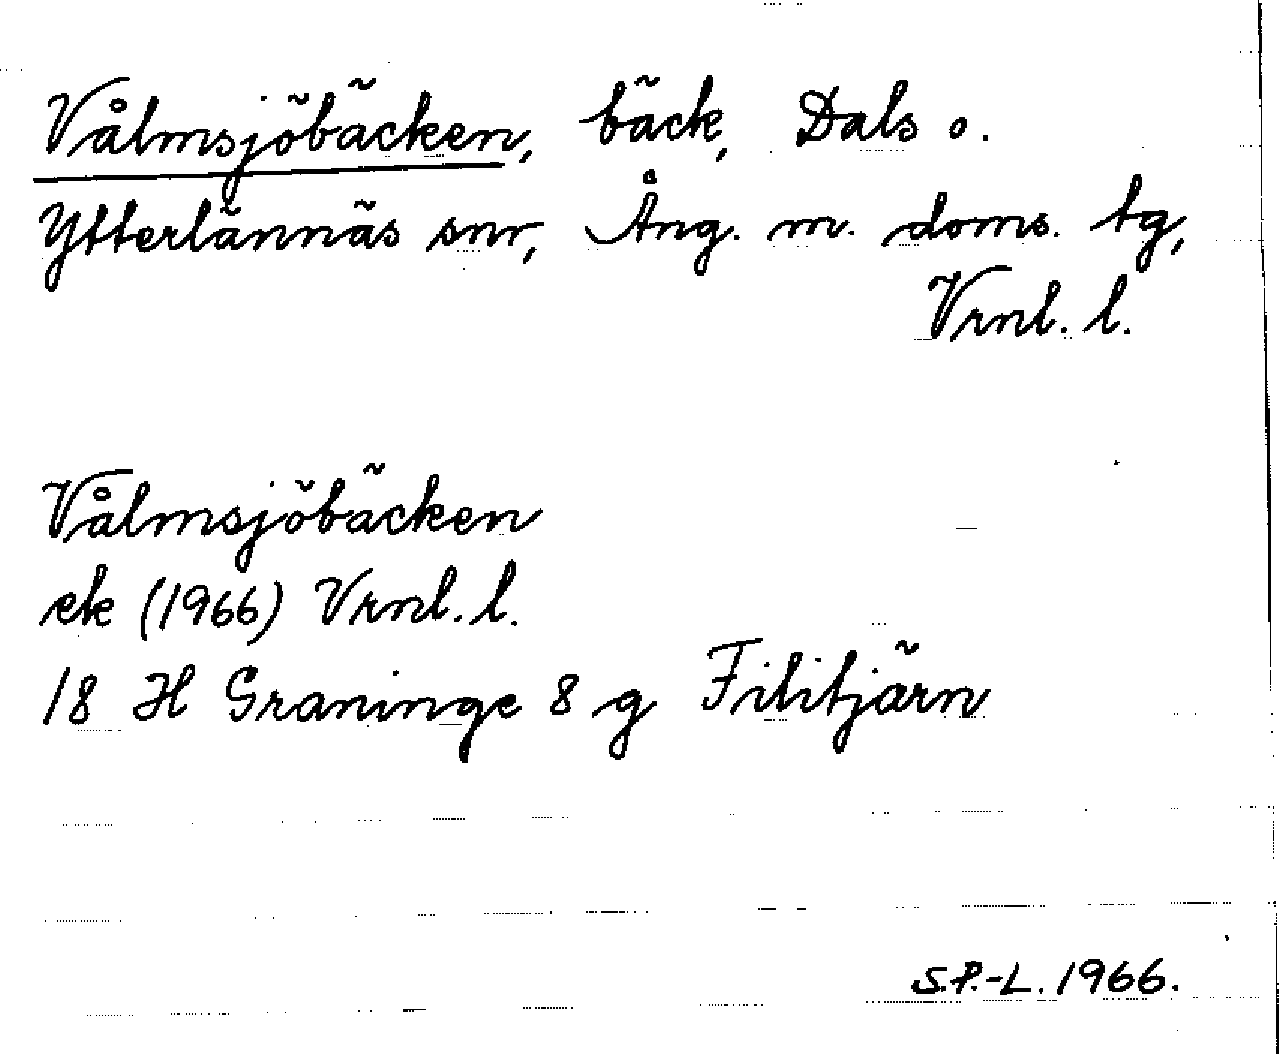 Vålmsjöbäcken, bäck, Dals o.
Ytterlännäs snr, Ång. m. doms. tg,
Vrnl. l.
Vålmsjöbäcken
ek (1966) Vrnl. l.
18 H Graninge 8 g Filitjärn
S.P.-L. 1966.